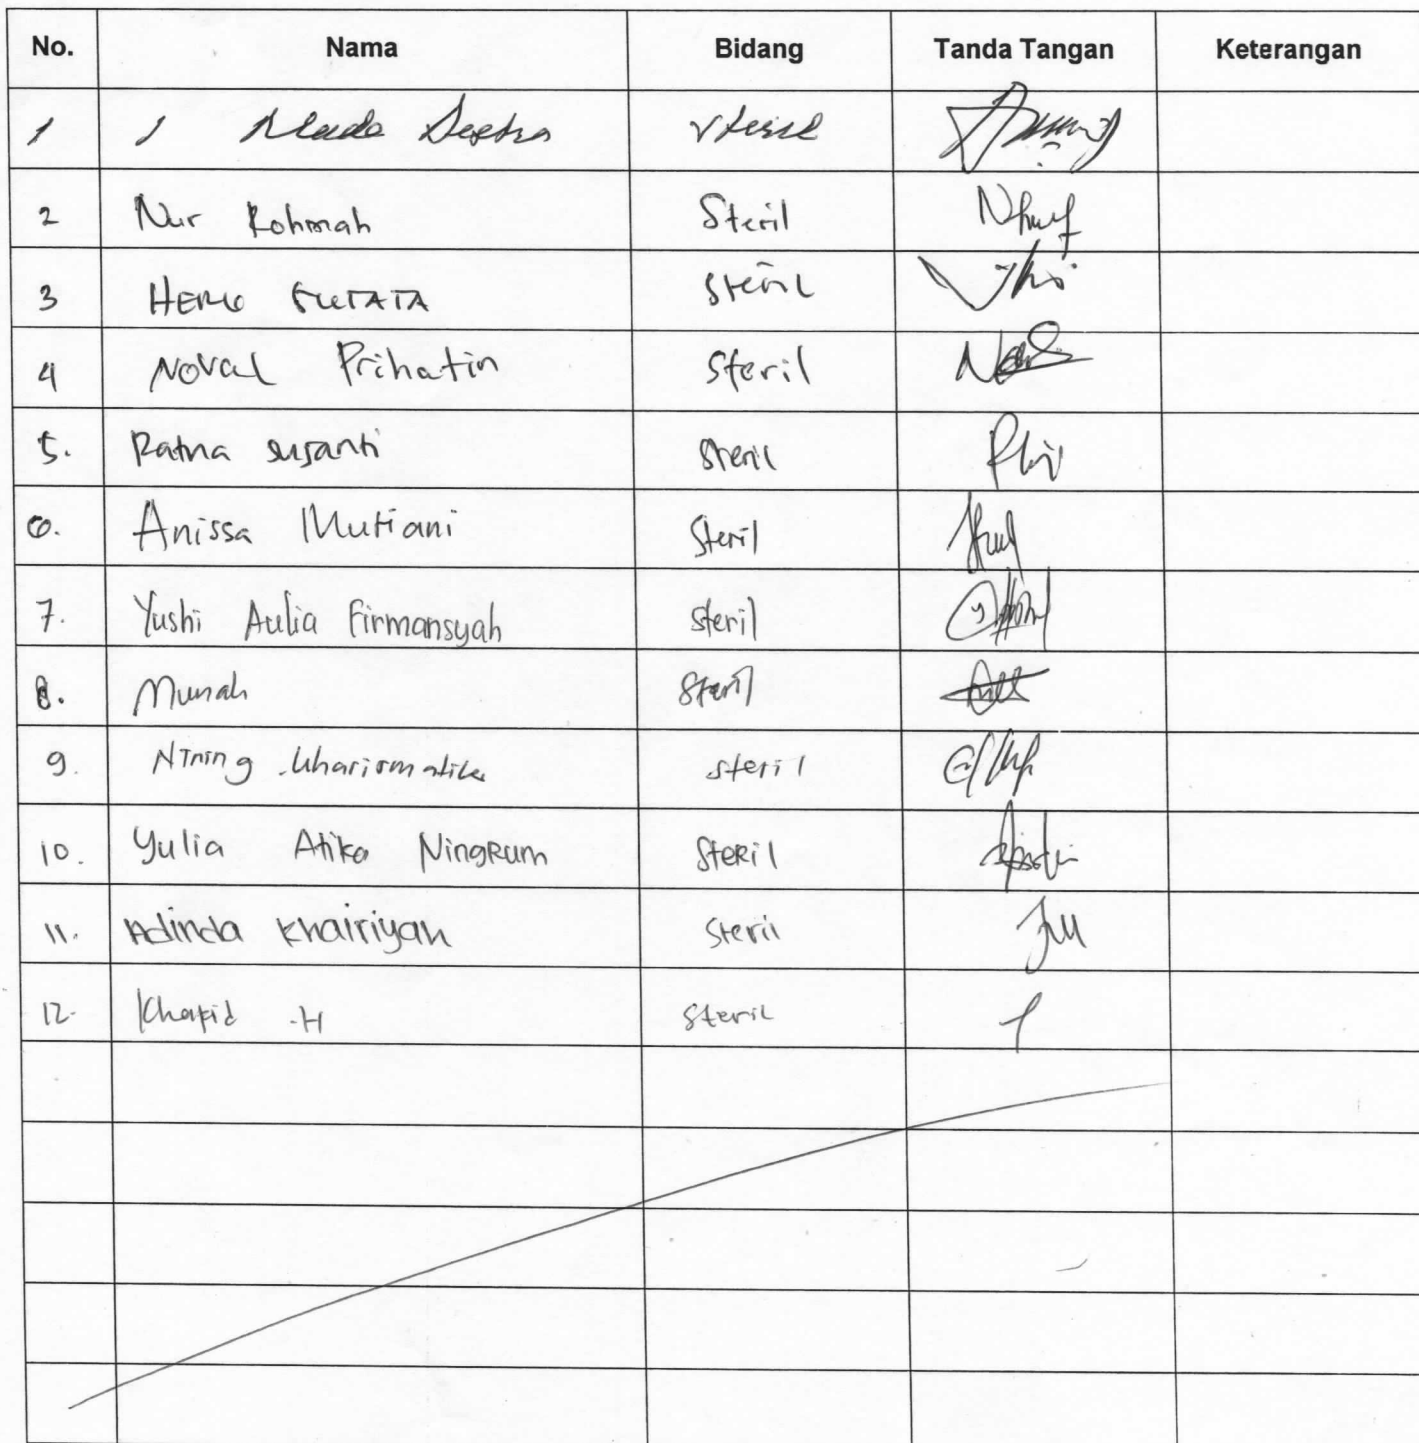 No. Nama Bidang Tanda Tangan Keterangan
1 I Made
2 Nur Rohmah Steril
3 Steril
4 Noval Prihatin Steril
5. Ratna Susanti Steril
6. Anissa Mutiani Steril
7. Yushi Aulia Firmansyah Steril
8. Munah Steril
9. Nining kharismatika steril
10. Yulia Atika NingRum SteRil
11. Adinda Khairiyah Steril
12. Khafid .H Steril